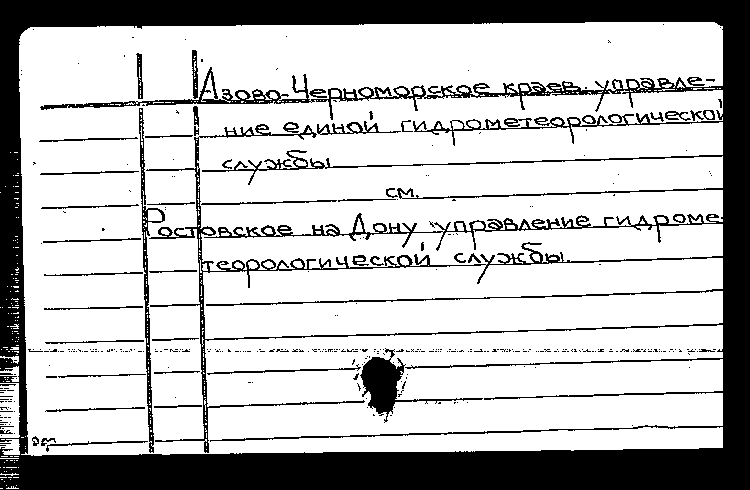 Азово-Черноморское краев. управле-
ние единой гидрометеорологической
службы
см.
Ростовское на Дону управление гидроме-
теорологической службы.